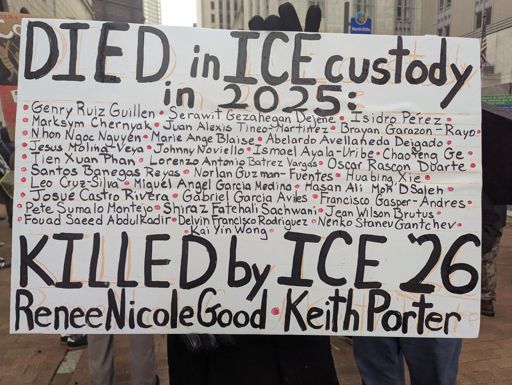 DIED in ICE custody
in 2025:
Genry Ruiz Guillen • Serawit Gezahegan Dejene • Isidro Perez
Maksym Chernyak • Juan Alexis Tineo-Martinez • Brayan Garzon-Rayo
Nhon Ngoc Nguyen • Marie Ange Blaise • Abelardo Avelleneda Delgado
Jesus Molina-Veya • Johnny Noviello • Ismael Ayala-Uribe • Chaofeng Ge
Tien Xuan Phan • Lorenzo Antonio Batrez Vargas • Oscar Rascon Duarte
Santos Banegas Reyas • Norlan Guzman-Fuentes • Huabing Xie
Leo Cruz-Silva • Miguel Angel Garcia Medina • Hasan Ali Moh D Saleh
Josue Castro Rivera • Gabriel Garcia Aviles • Francisco Gasper-Andres
Pete Sumalo Montejo • Shiraz Fatehali Sachwani • Jean Wilson Brutus
Fouad Saeed Abdulkadir • Delvin Francisco Rodriguez • Nenko Stanev Gantchev
Kai Yin Wong
KILLED by ICE '26
Renee Nicole Good • Keith Porter